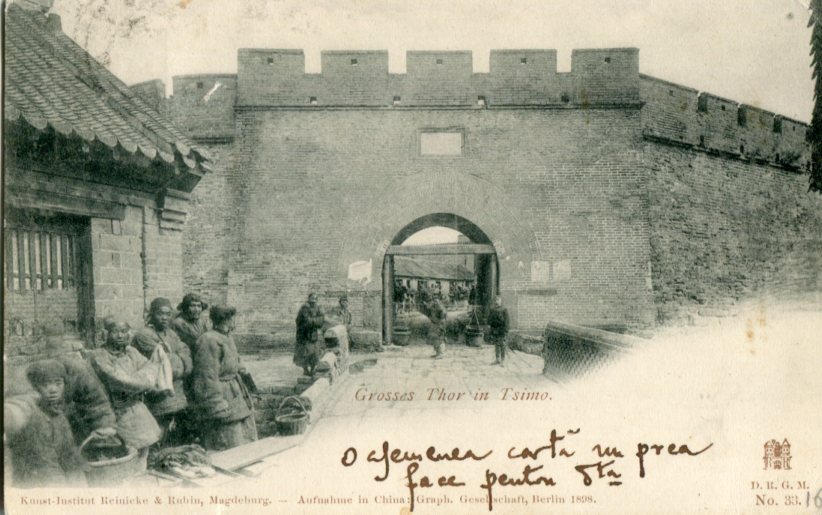 Grosses Thor in Tsimo.
O asemenea cartă nu prea
face pentru Dta
Kunst-Institut Reinicke & Rubin, Magdeburg. — Aufnahme in China: Graph. Gesellschaft, Berlin 1898.
D. R. G. M.
No. 33.